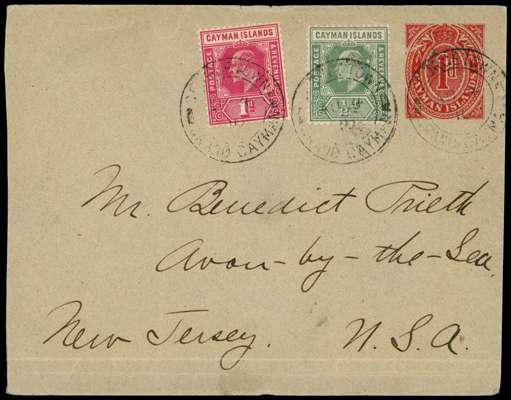 CAYMAN ISLANDS
POSTAGE & REVENUE
1d
CAYMAN ISLANDS
POSTAGE & REVENUE
1d
CAYMAN ISLANDS
GRAND CAYMAN
GRAND CAYMAN
Mr. Benedict Prieth
Avon-by-the-Sea,
New Jersey. U.S.A.